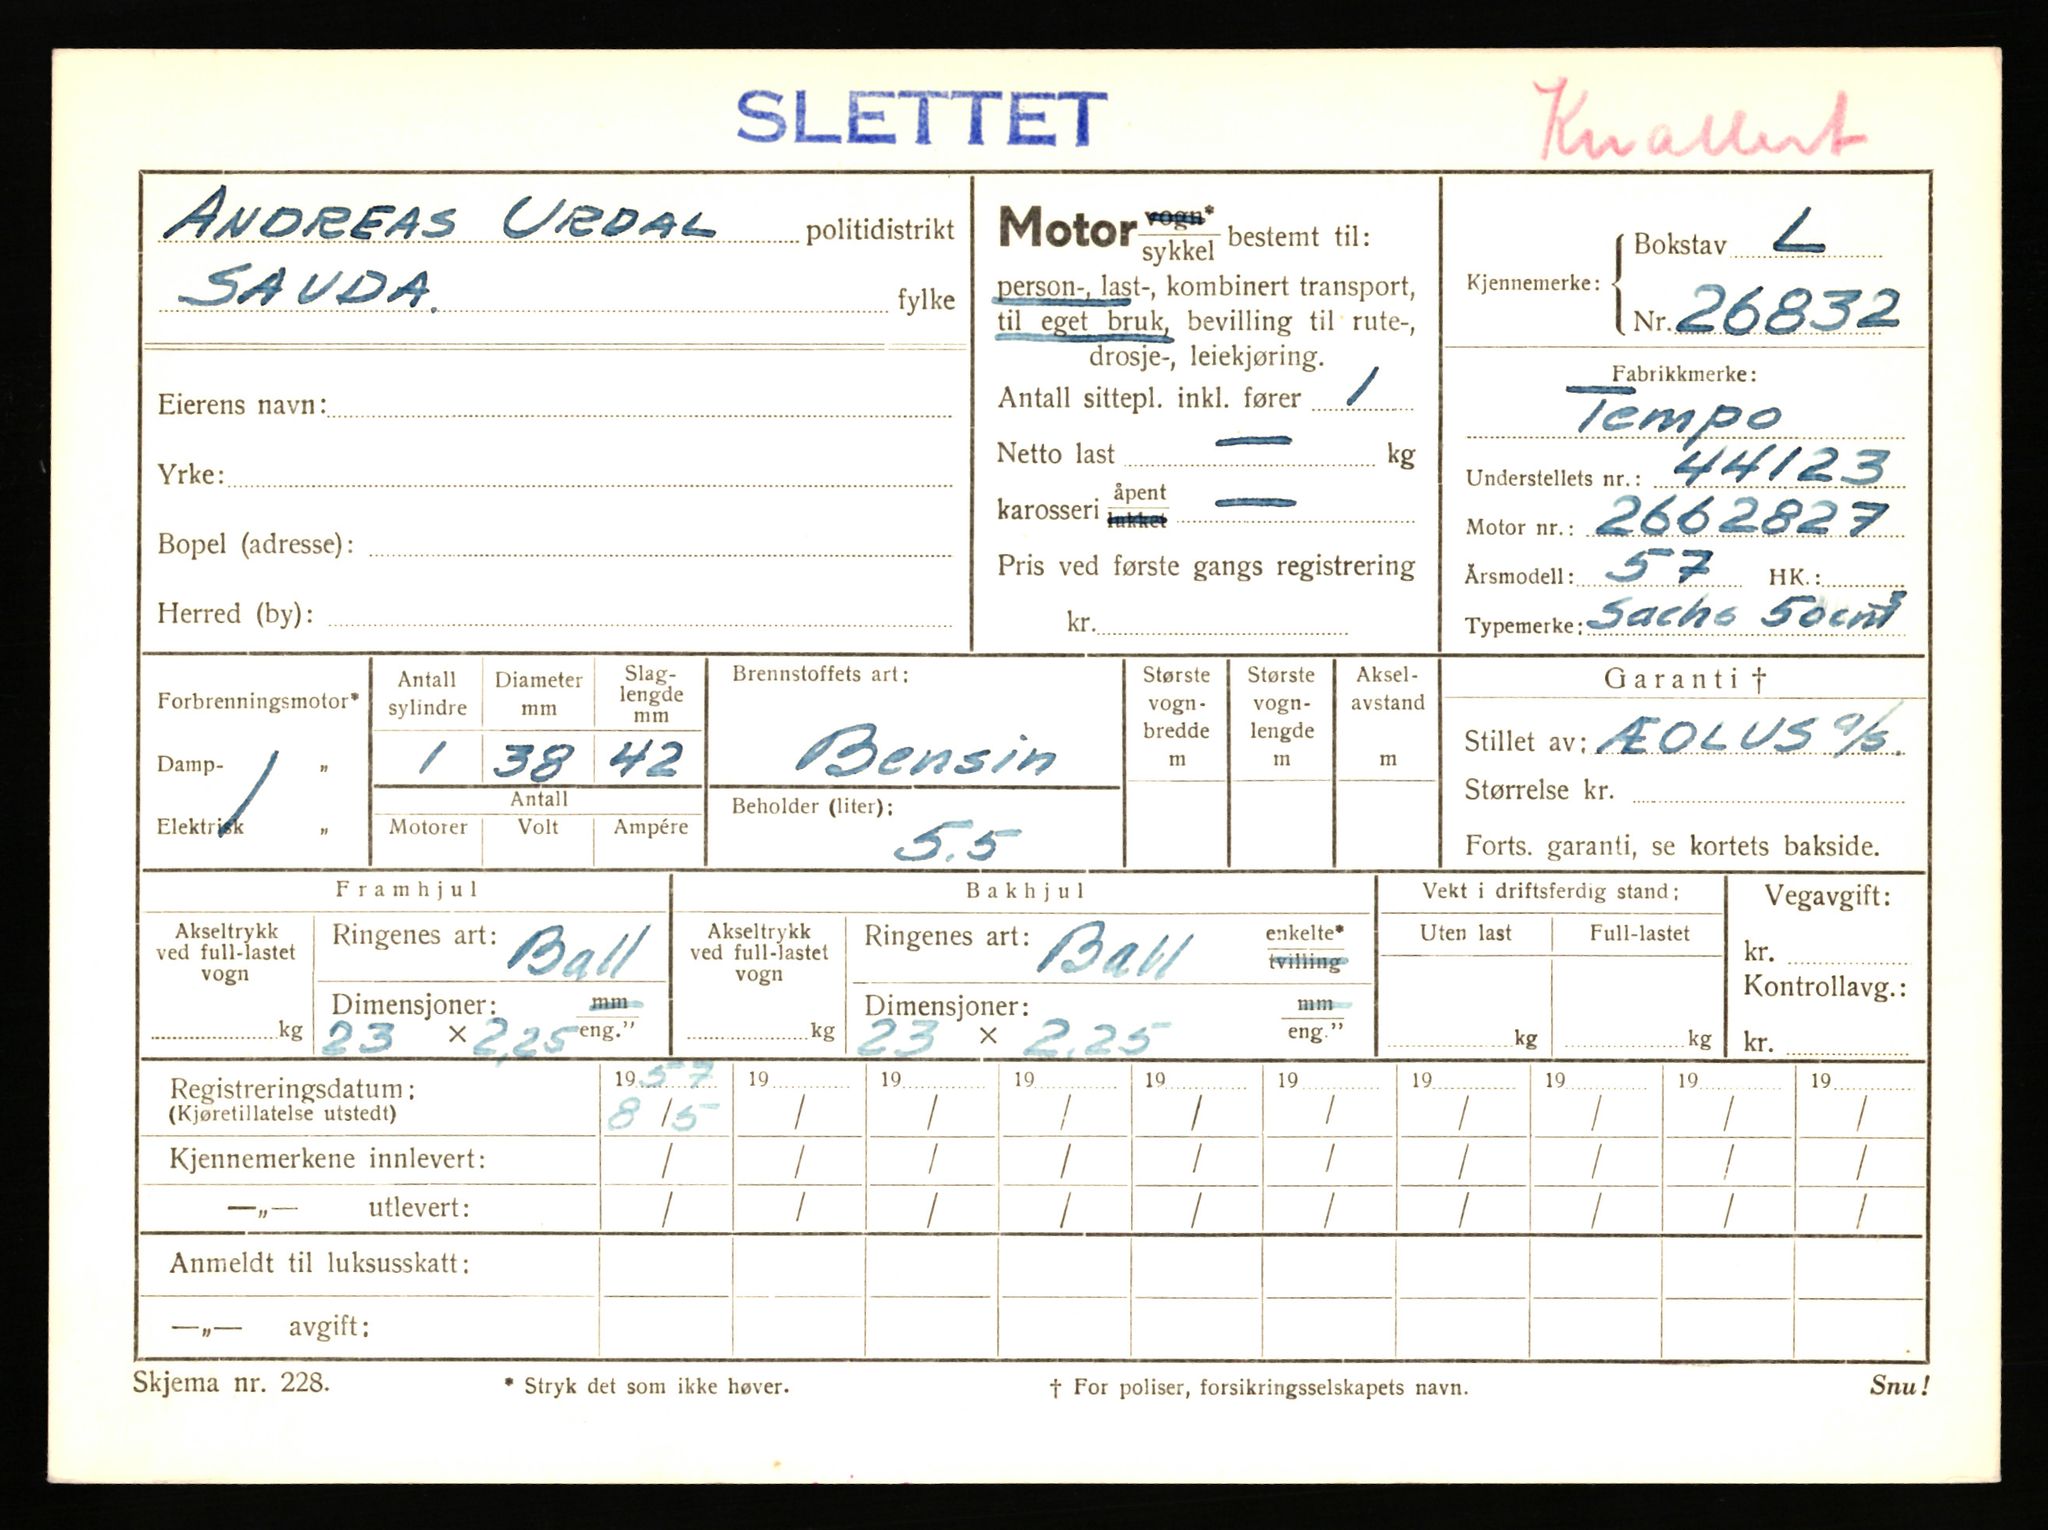 SLETTET
Knallert
ANDREAS URDAL politidistrikt
SAUDA. fylke
Eierens navn:
Yrke:
Bopel (adresse):
Herred (by):
Motor vogn* / sykkel bestemt til:
person-, last-, kombinert transport,
til eget bruk, bevilling til rute-,
drosje-, leiekjøring.
Antall sittepl. inkl. fører 1
Netto last — kg
karosseri åpent / lukket —
Pris ved første gangs registrering
kr.
Kjennemerke: { Bokstav L
Nr. 26832
Fabrikkmerke:
Tempo
Understellets nr.: 44123
Motor nr.: 2662827
Årsmodell: 57 HK.:
Typemerke: Sachs 50cm³
Forbrenningsmotor*
Damp- „
Elektrisk „
Antall sylindre
1
Diameter mm
38
Slag-lengde mm
42
Antall
Motorer Volt Ampére
Brennstoffets art:
Bensin
Beholder (liter):
5.5
Største vogn-bredde m
Største vogn-lengde m
Aksel-avstand m
Garanti †
Stillet av: ÆOLUS a/s.
Størrelse kr.
Forts. garanti, se kortets bakside.
Framhjul
Akseltrykk ved full-lastet vogn
kg
Ringenes art: Ball
Dimensjoner: mm
23 × 2,25 eng.”
Bakhjul
Akseltrykk ved full-lastet vogn
kg
Ringenes art: Ball enkelte* / tvilling
Dimensjoner: mm
23 × 2,25 eng.”
Vekt i driftsferdig stand:
Uten last Full-lastet
kg kg
Vegavgift:
kr.
Kontrollavg.:
kr.
Registreringsdatum: 19 57 19 19 19 19 19 19 19 19 19
(Kjøretillatelse utstedt) 8/5 / / / / / / / / /
Kjennemerkene innlevert: / / / / / / / / / /
—„— utlevert: / / / / / / / / / /
Anmeldt til luksusskatt:
—„— avgift:
Skjema nr. 228. * Stryk det som ikke høver. † For poliser, forsikringsselskapets navn. Snu!